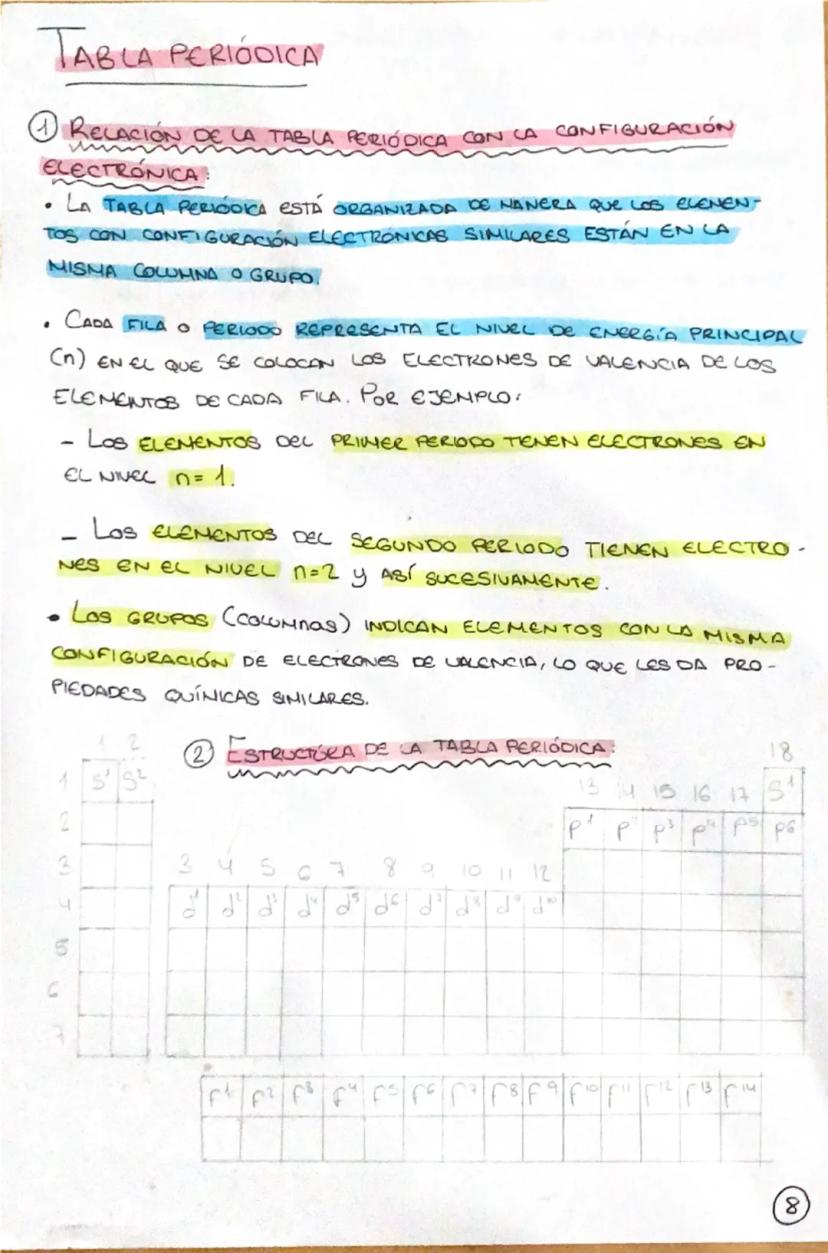 TABLA PERIÓDICA
① RELACIÓN DE LA TABLA PERIÓDICA CON LA CONFIGURACIÓN
ELECTRÓNICA:
• LA TABLA PERIÓDICA ESTÁ ORGANIZADA DE MANERA QUE LOS ELEMEN-
TOS CON CONFIGURACIÓN ELECTRÓNICAS SIMILARES ESTÁN EN LA
MISMA COLUMNA O GRUPO.
• CADA FILA O PERIODO REPRESENTA EL NIVEL DE ENERGÍA PRINCIPAL
(n) EN EL QUE SE COLOCAN LOS ELECTRONES DE VALENCIA DE LOS
ELEMENTOS DE CADA FILA. POR EJEMPLO:
- LOS ELEMENTOS DEL PRIMER PERIODO TENEN ELECTRONES EN
EL NIVEL n=1.
- LOS ELEMENTOS DEL SEGUNDO PERIODO TIENEN ELECTRO-
NES EN EL NIVEL n=2 y ASÍ SUCESIVAMENTE.
• LOS GRUPOS (COLUMNAS) INDICAN ELEMENTOS CON LA MISMA
CONFIGURACIÓN DE ELECTRONES DE VALENCIA, LO QUE LES DA PRO-
PIEDADES QUÍMICAS SIMILARES.
② ESTRUCTURA DE LA TABLA PERIÓDICA:
1 2
18
1 S¹ S²
13 14 15 16 17 S¹
2 p¹ p² p³ p⁴ p⁵ p⁶
3 3 4 5 6 7 8 9 10 11 12
4 d¹ d² d³ d⁴ d⁵ d⁶ d⁷ d⁸ d⁹ d¹⁰
5
6
7
f¹ f² f³ f⁴ f⁵ f⁶ f⁷ f⁸ f⁹ f¹⁰ f¹¹ f¹² f¹³ f¹⁴
⑧